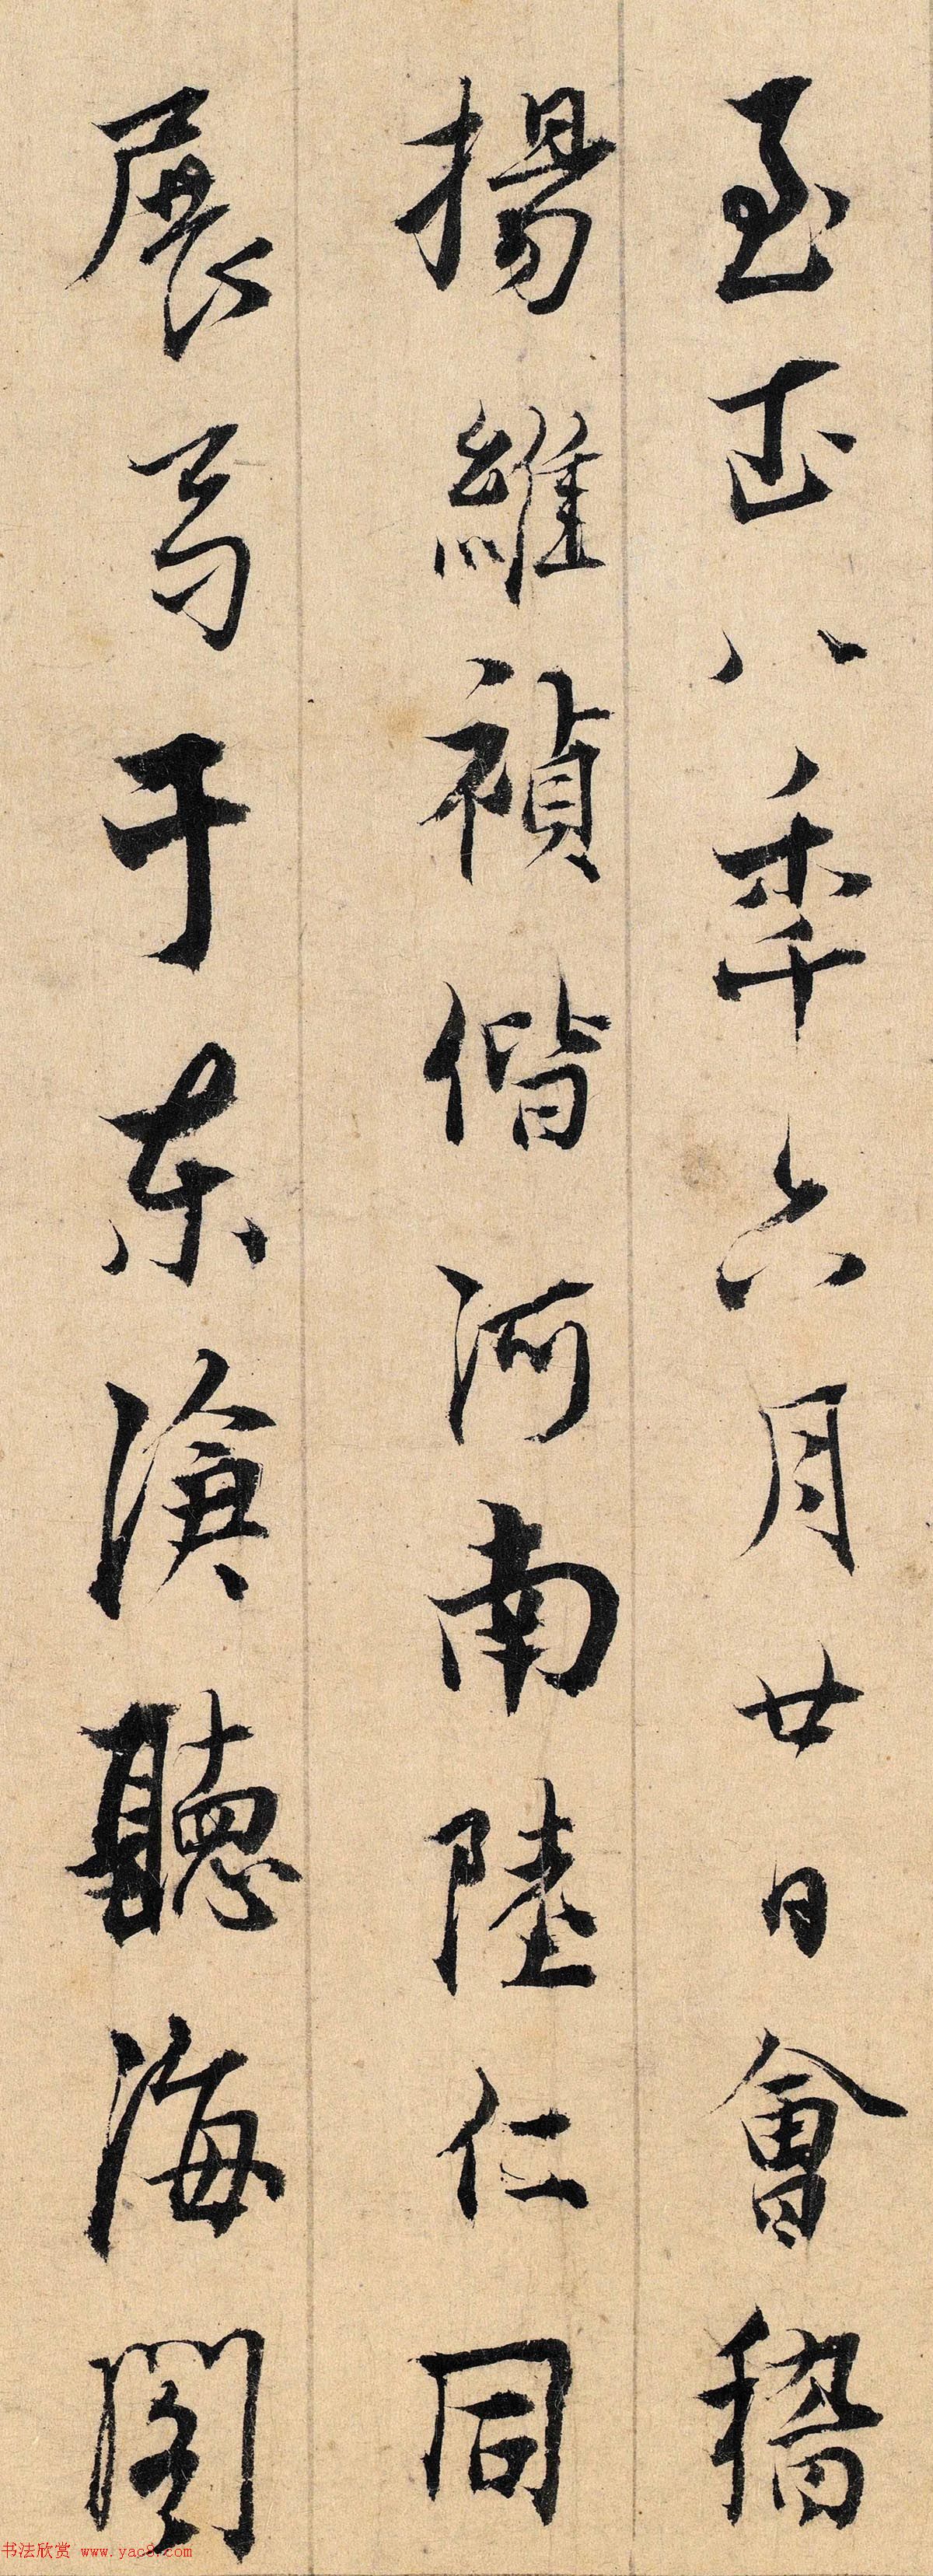 至正八季六月廿日會稽
揚維禎偕河南陸仁同
展弓于东滄聽海閣
书法欣赏 www.yac8.com